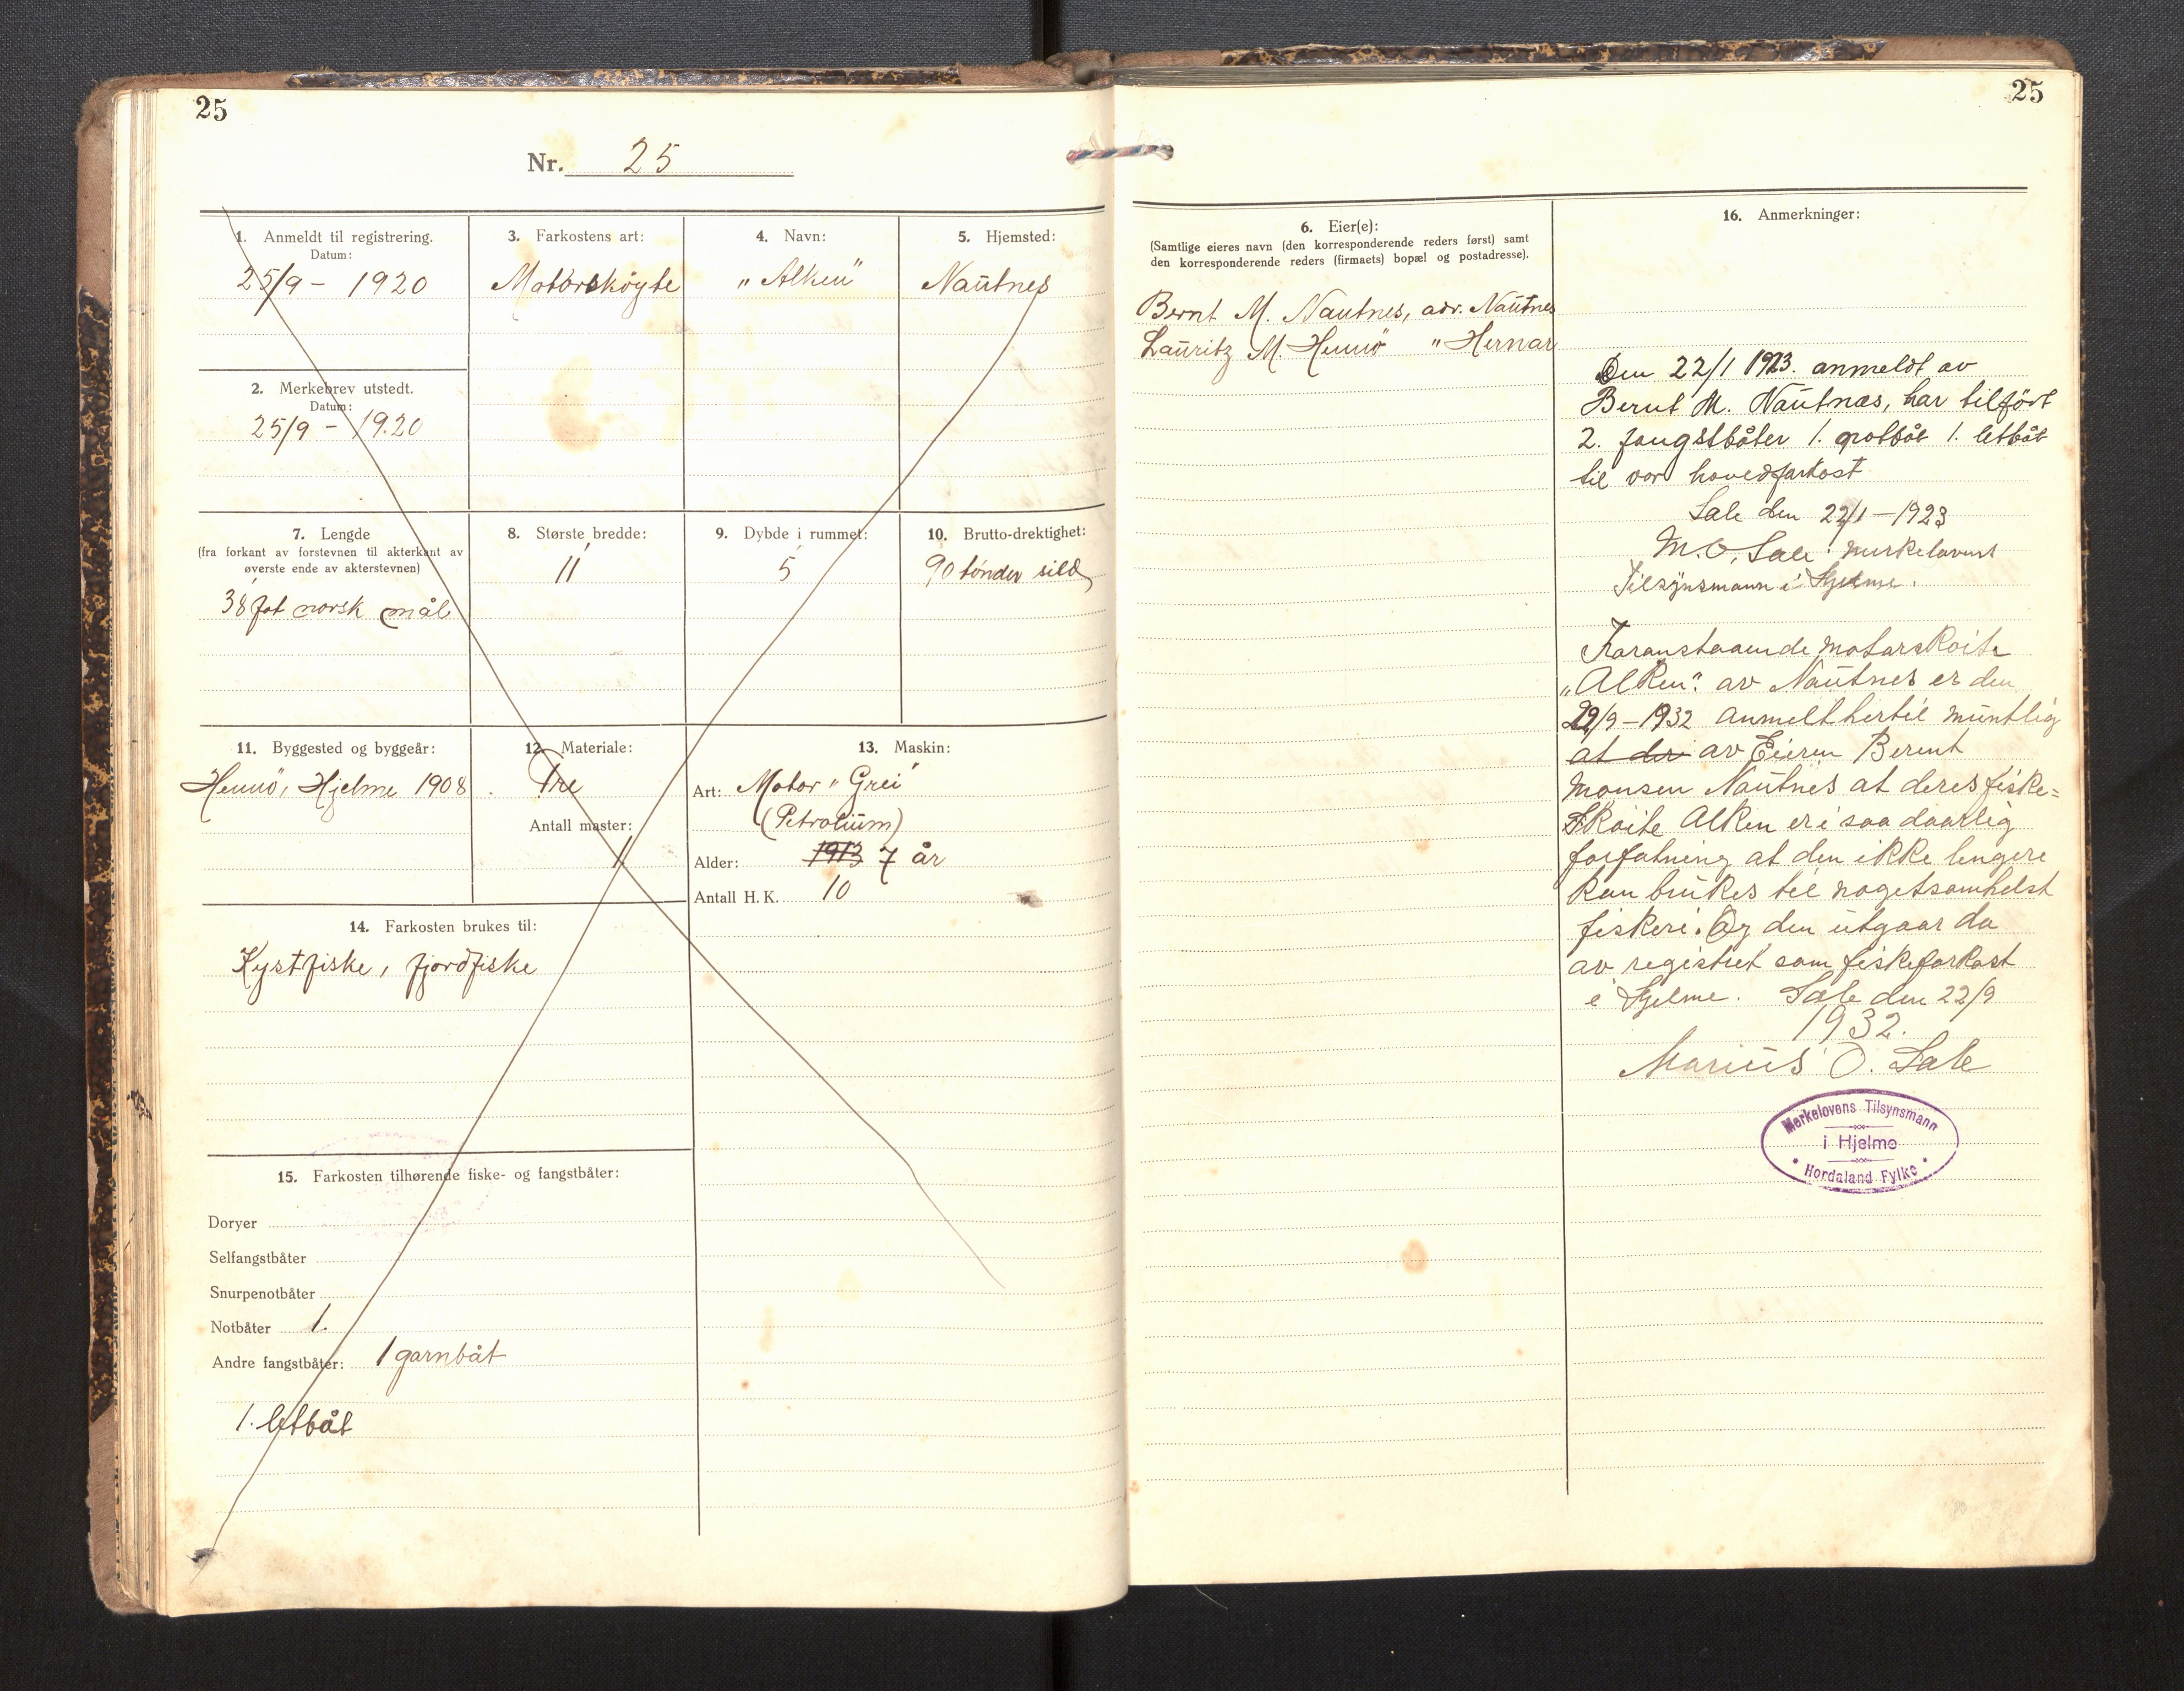 25
Nr. 25
1. Anmeldt til registrering.
Datum:
25/9 - 1920
2. Merkebrev utstedt.
Datum:
25/9 - 1920
3. Farkostens art:
Motorskøyte
4. Navn:
„Alken"
5. Hjemsted:
Nautnes
7. Lengde
(fra forkant av forstevnen til akterkant av
øverste ende av akterstevnen)
38 fot norsk mål
8. Største bredde:
11'
9. Dybde i rummet:
5'
10. Brutto-drektighet:
90 tönder sild
11. Byggested og byggeår:
Hennö, Hjelme 1908
12. Materiale:
Tre
Antall master:
1
13. Maskin:
Art: Motor „Grei"
(Petrolium)
Alder: 1913 7 år
Antall H. K. 10
14. Farkosten brukes til:
Kystfiske, fjordfiske
15. Farkosten tilhørende fiske- og fangstbåter:
Doryer
Selfangstbåter
Snurpenotbåter
Notbåter 1.
Andre fangstbåter: 1 garnbåt
1. letbåt
25
6. Eier(e):
(Samtlige eieres navn (den korresponderende reders først) samt
den korresponderende reders (firmaets) bopæl og postadresse).
Bernt M. Nautnes, adr. Nautnes
Lauritz M. Hennö " Hernar
16. Anmerkninger:
Den 22/1 1923. anmeldt av
Bernt M. Nautnæs, har tilført
2. fangstbåter 1. notbåt 1. letbåt
til vor hovedfarkost
Sale den 22/1 - 1923
M. O. Sale. merkelovens
Tilsynsmann i Hjelme.
Foranstaaende motorskoite
„Alken". av Nautnes er den
22/9 - 1932 anmelt hertil muntlig
at der av Eieren Berent
Monsen Nautnes at deres fiske=
skoite Alken er i saa daarlig
forfatning at den ikke lengere
kan brukes til nogetsomhelst
fiskeri. Og den utgaar da
av registret som fiskefarkost
i Hjelme. Sale den 22/9
1932.
Marius O. Sale
Merkelovens Tilsynsmann
i Hjelme
Hordaland Fylke